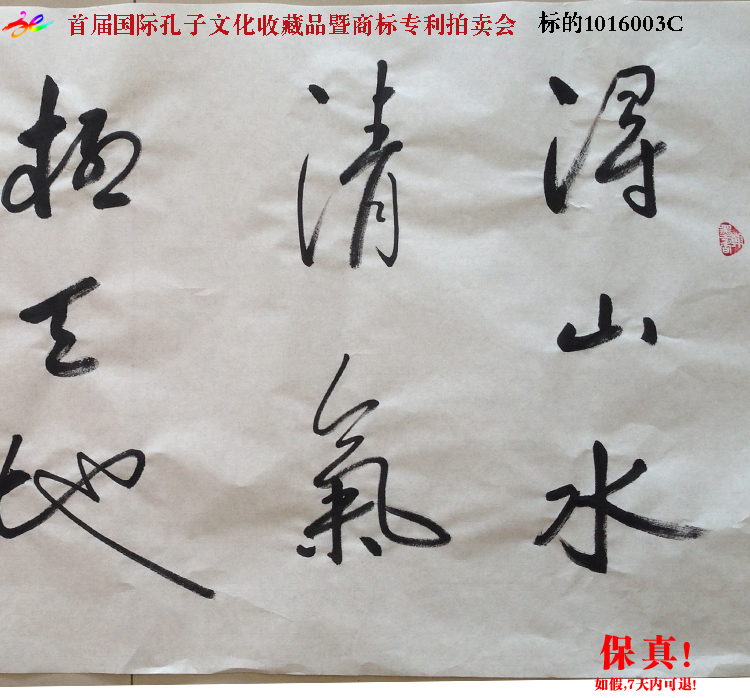 首届国际孔子文化收藏品暨商标专利拍卖会 标的1016003C
得山水
清氣
極天地
保真!
如假,7天内可退!